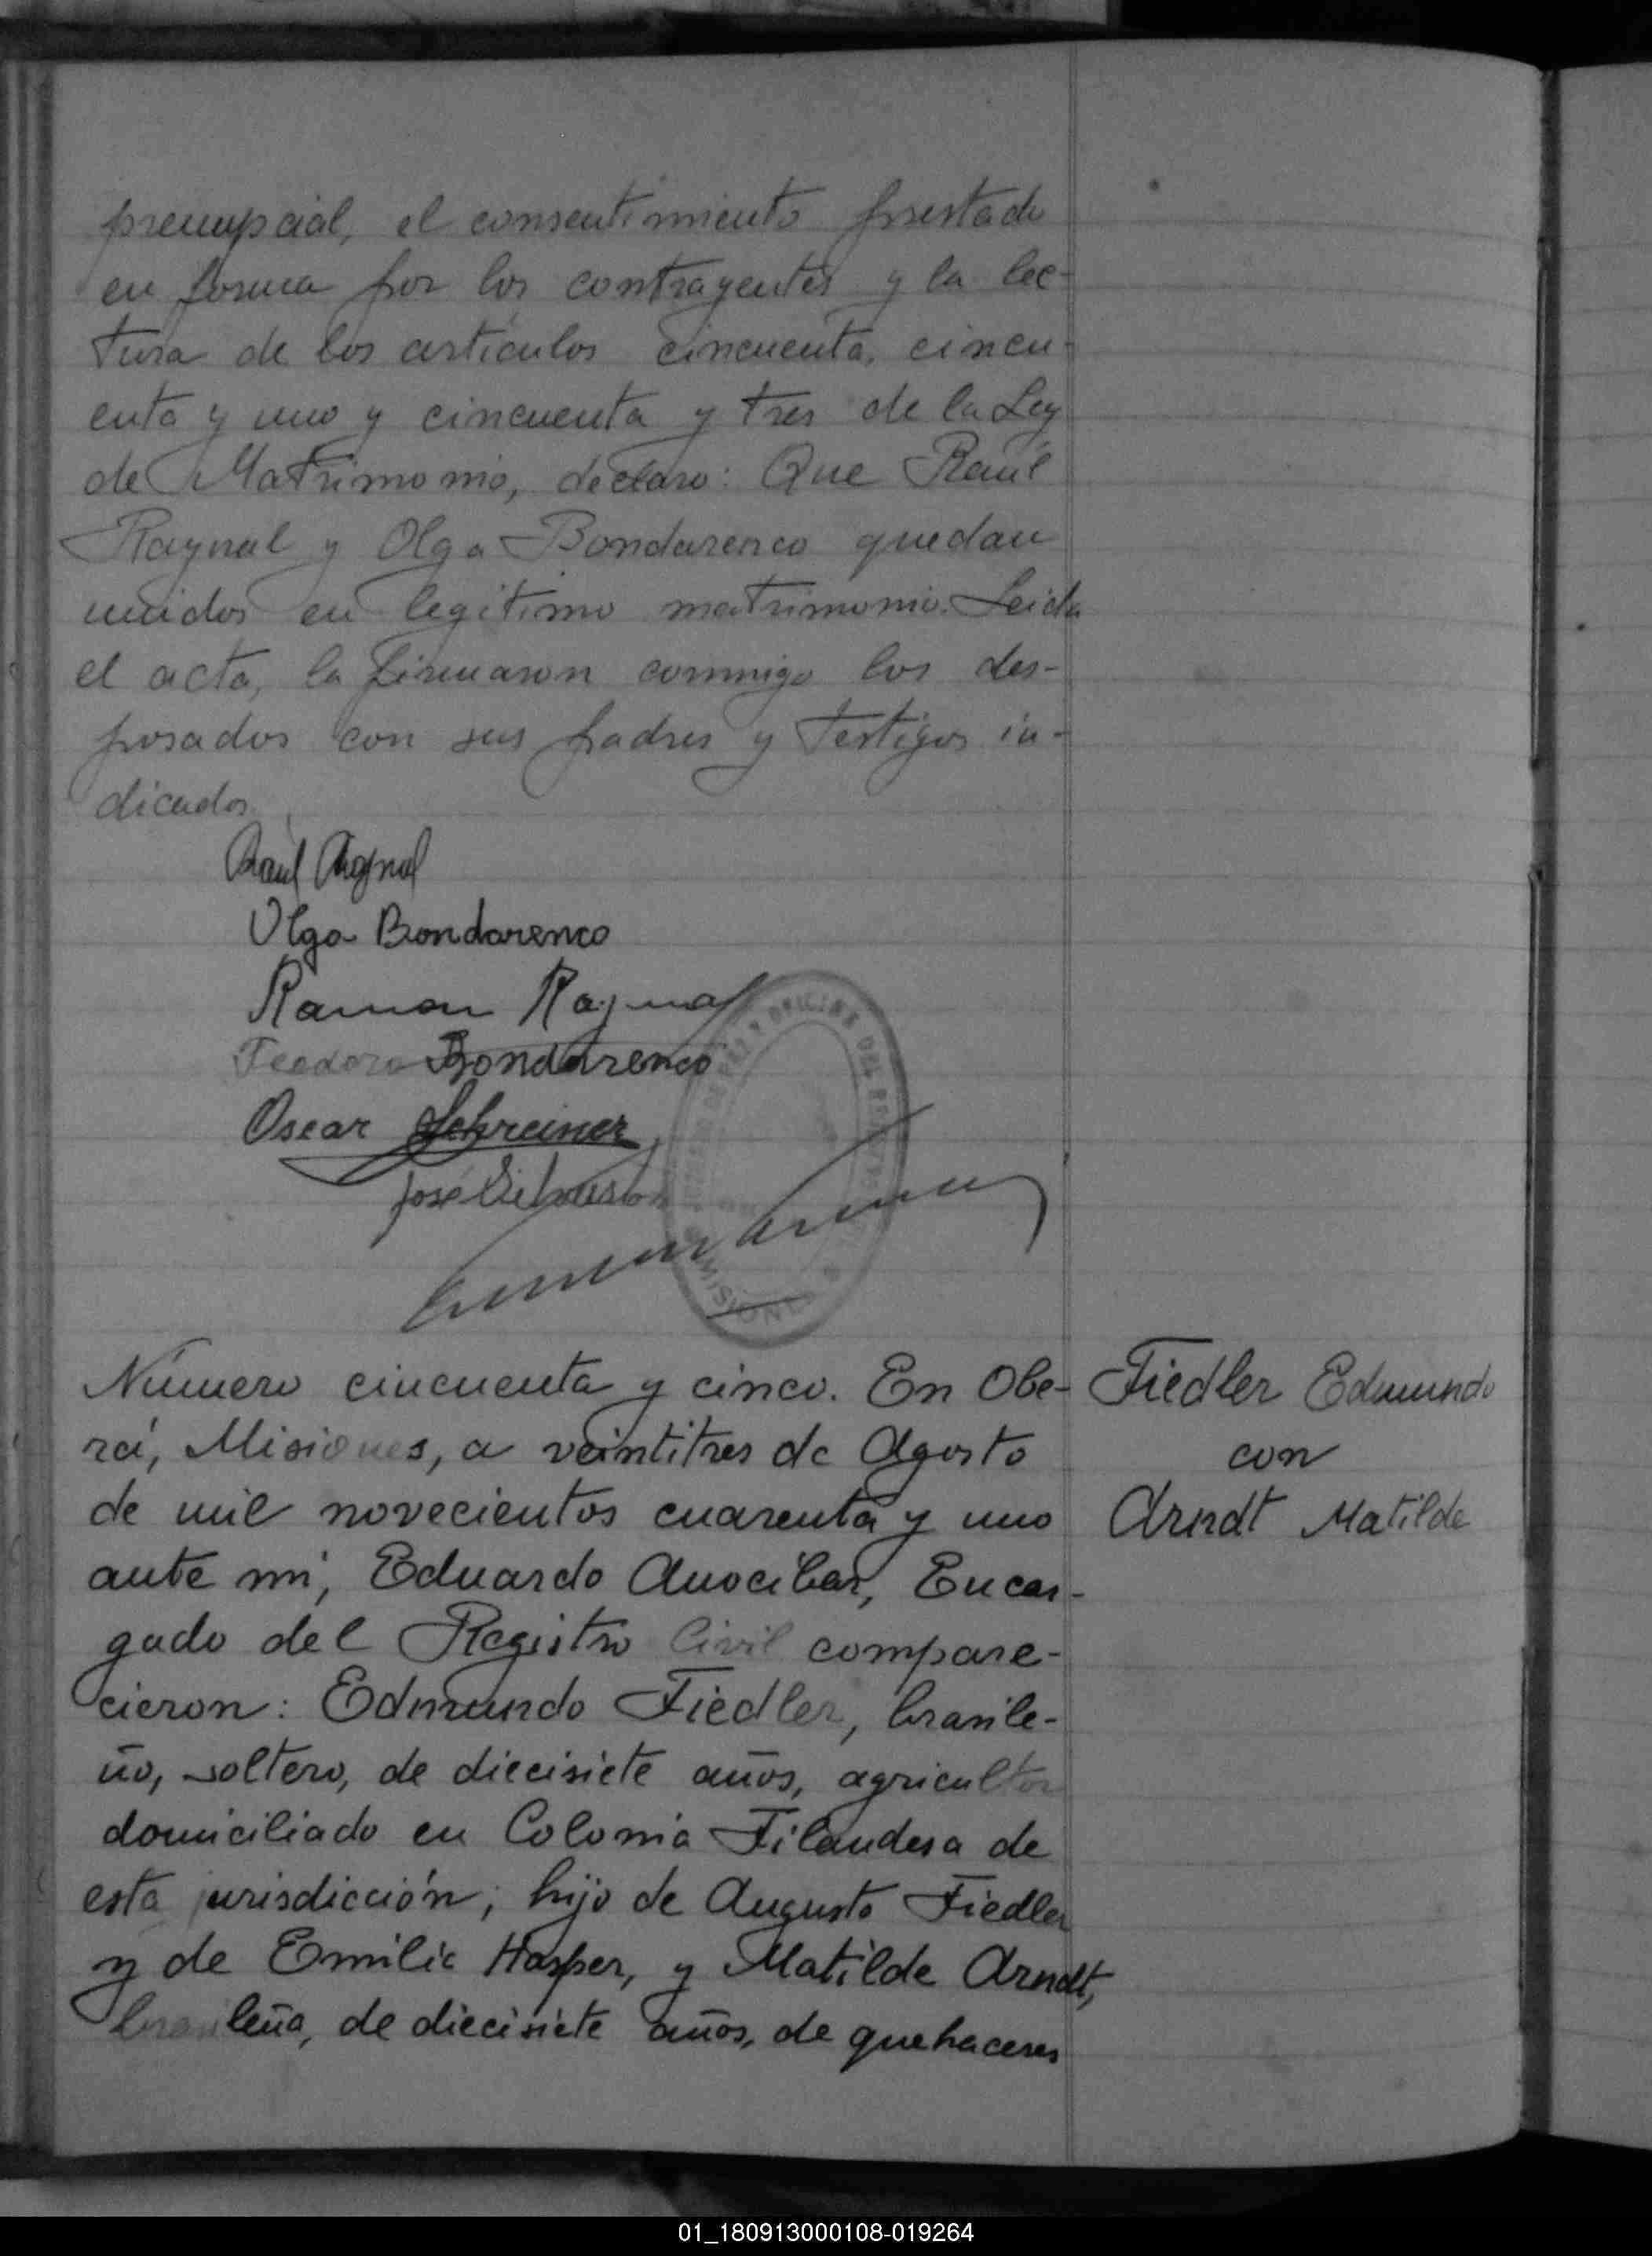 prenupcial, el consentimiento prestado
en forma por los contrayentes y la lec-
tura de los artículos cincuenta, cincu-
enta y uno y cincuenta y tres de la Ley
de Matrimonio, declaro: Que Raúl
Raynal y Olga Bondarenco quedan
unidos en legitimo matrimonio. Leida
el acta, la firmaron conmigo los des-
posados con sus padres y testigos in-
dicados
Raul Raynal
Olga Bondarenco
Ramon Raynal
Teodoro Bondarenco
Oscar Schreiner
José
OFICINA DEL
MISIONES
Número cincuenta y cinco. En Obe-
rá, Misiones, a veintitres de Agosto
de mil novecientos cuarenta y uno
ante mi, Eduardo Anocibar, Encar-
gado del Registro Civil compare-
cieron: Edmundo Fiedler, brasile-
ño, soltero, de diecisiete años, agricultor
domiciliado en Colonia Filandesa de
esta jurisdicción; hijo de Augusto Fiedler
y de Emilia Hasper, y Matilde Arndt,
brasileña, de diecisiete años, de quehaceres
Fiedler Edmundo
con
Arndt Matilde
01_180913000108-019264